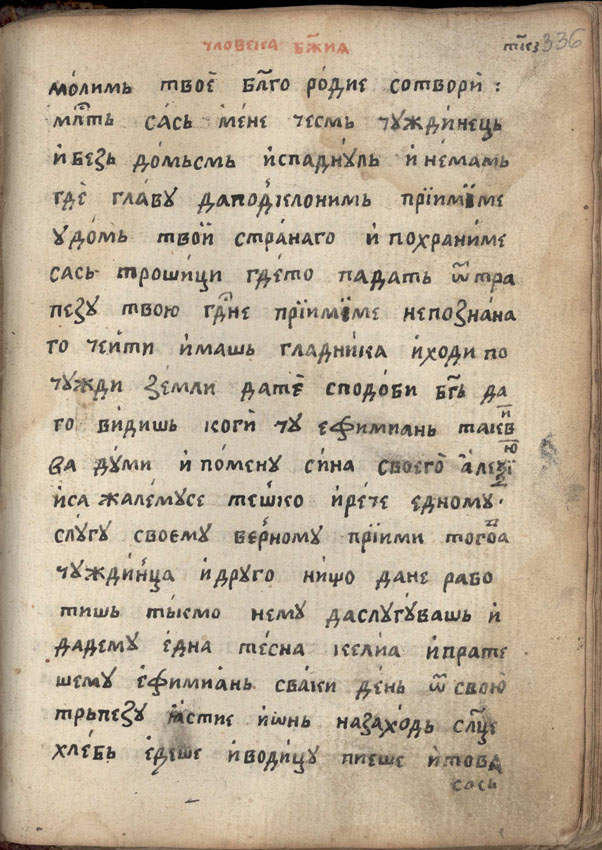 человека бж҃їа
тк҃ез 336
мо́лимь твоѐ бл҃го ро́дие сотвори̏ :
мл҃ть са́сь ме́не чесмь чужди́нець
и҆ безь до́мьсмь и҆спадну́ль и҆ не́мамь
гдѐ гла́ву даподклонимь прїимѝме
у҆до́мь твоѝ стра́наго и҆ похрани́ме
сась троши́ци где́то падать ѿ тра
пезу твою гд҃не прїимѝме непозна́на
го чеи́ти и҆машь гладни́ка и҆ходи по
чу́жди зе́мли дате̏ сподо́би бг҃ь да
го ви́дишь коги̏ чу ефимиань такви
ва ду́ми и҆ по́мену си́на своего̀ а҆леѯїю
и҆са жале́мусе те́шко и҆ ре́че едному·
слу́гу своему ве́рному прїими тогова
чужди́нца и҆ друго ни́що дане рабо
тишь ты́кмо нему даслугу́вашь и҆
да́дему е҆дна те́сна кели́а и҆ прате
шему е҆фимиа́нь сва́ки де́нь ѿ свою
трьпезу ꙗ҆стие и҆ѡнь назахо́дь сл҃це
хле́бь е҆де́ше и҆ води́цу пиеше и҆ това
сась